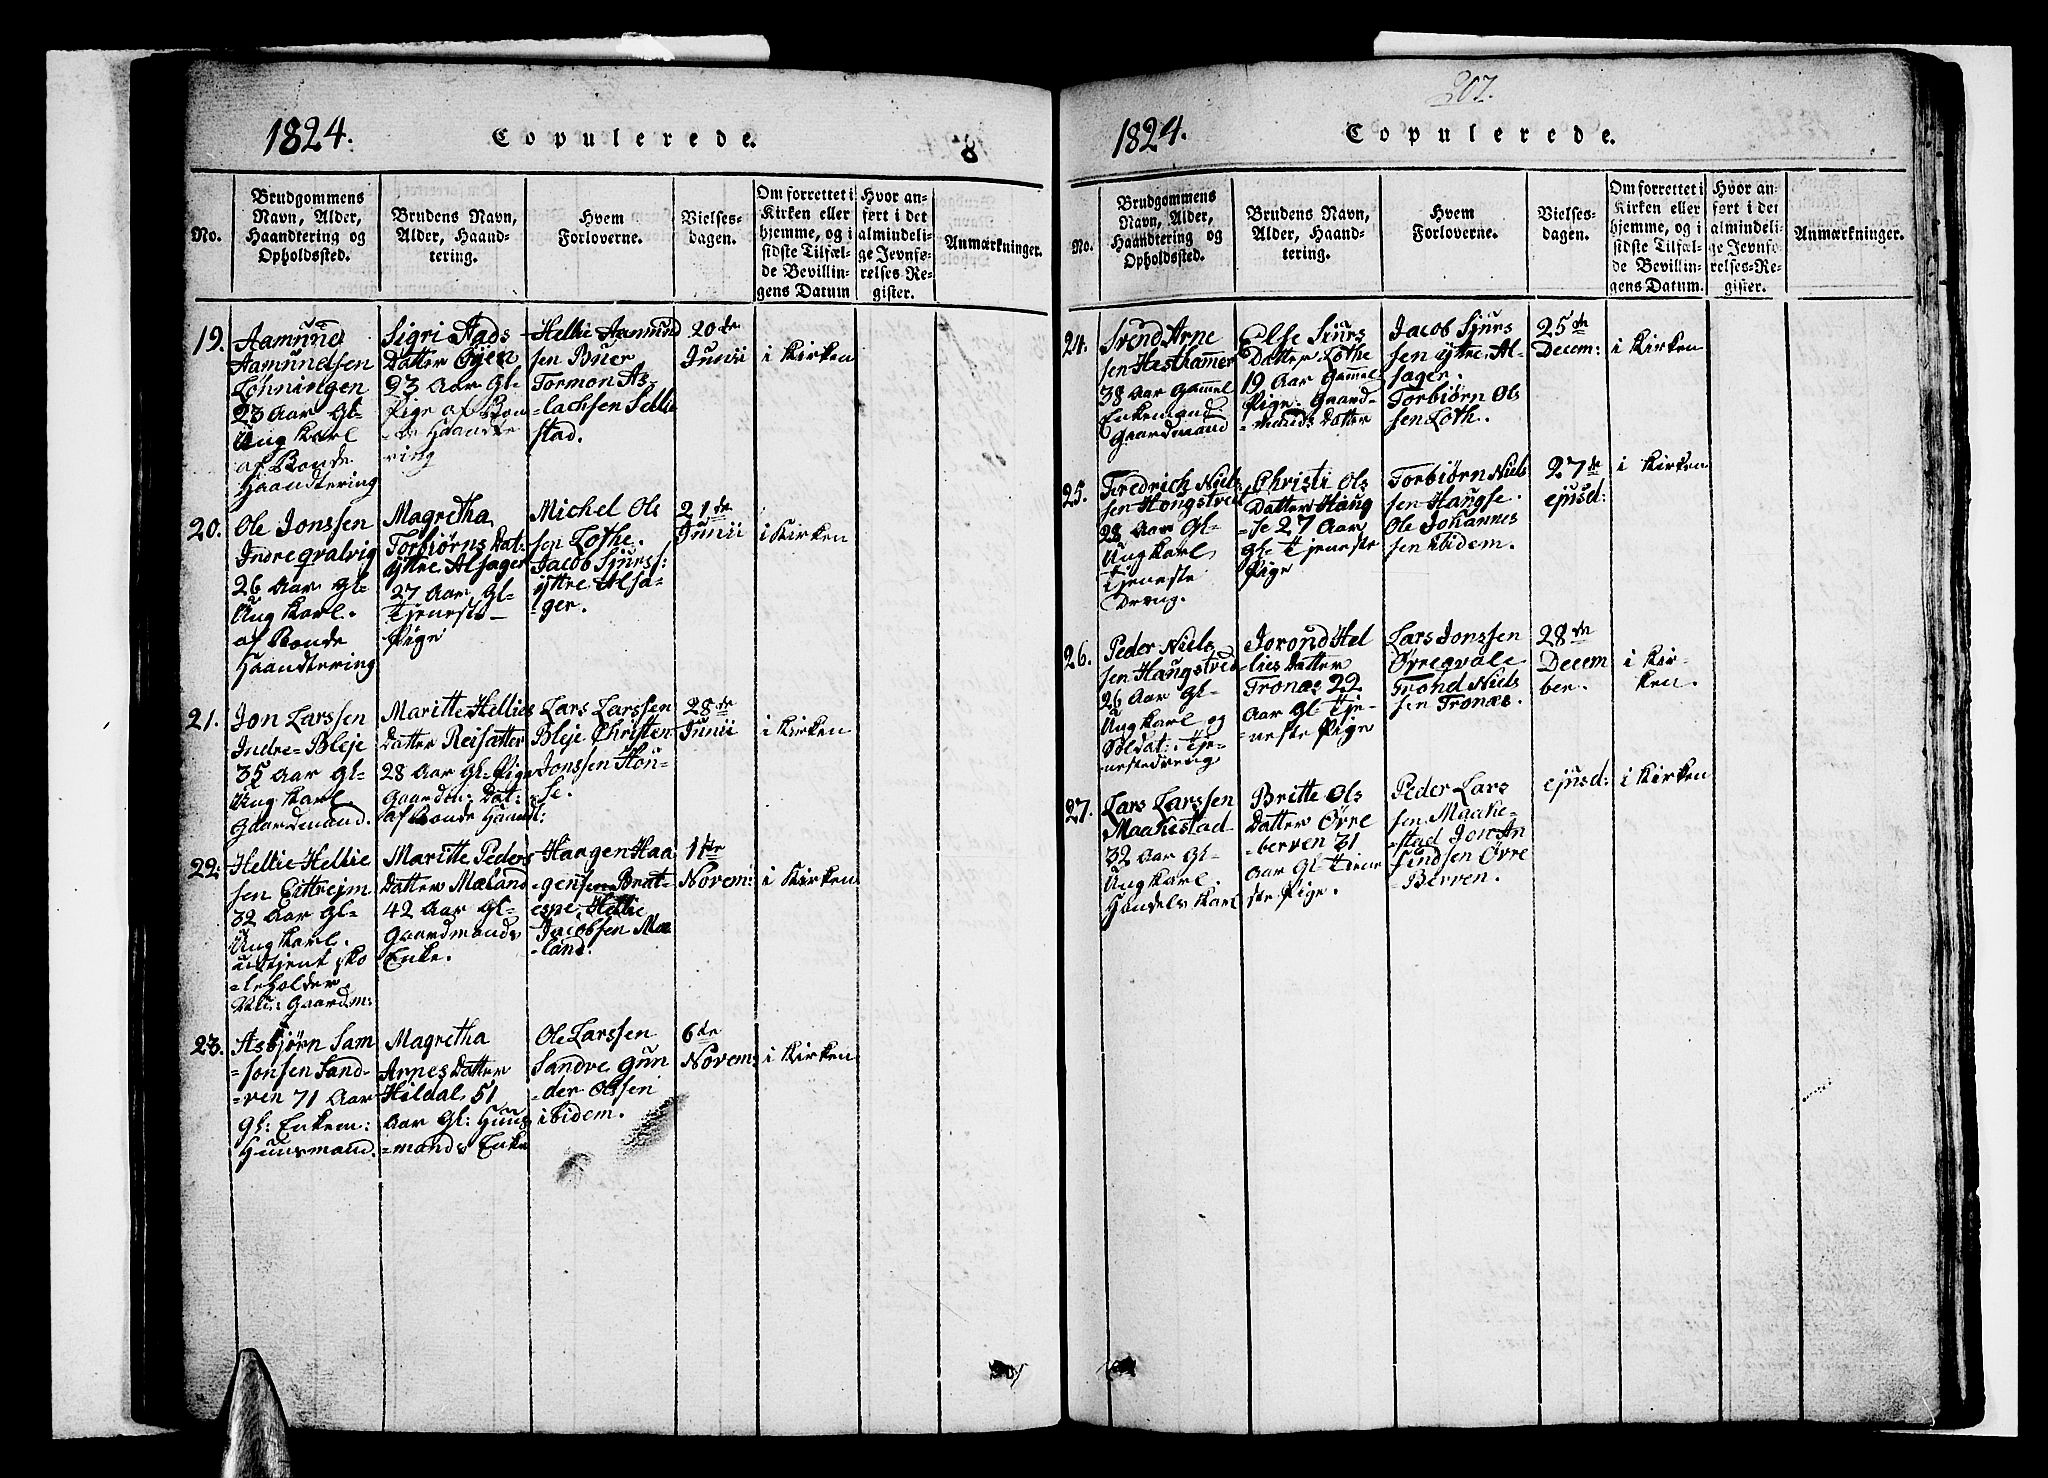 1824.
Copulerede.
8
No.
Brudgommens
Navn, Alder,
Haandtering og
Opholdssted.
Brudens Navn,
Alder, Haand-
tering.
Hvem
Forloverne.
Vielses-
dagen.
Om forrettet i
Kirken eller
hjemme, og i
sidste Tilfæl-
de Bevillin-
gens Datum
Hvor an-
ført i det
almindeli-
ge Jevnfø-
relses-Re-
gister.
Anmærkninger.
19.
Aamund
Aamundsen
Lohningen
23 Aar Gl-
Ung Karl
af Bonde
Haandtering
Sigri Aads
Datter Eyen
23 Aar Gl-
Pige af Bon
-de Haandte
ring
Hellie Aamund
sen Buer
Tormon As-
-lachsen Sellie
stad.
20de
Junii
i Kirken
20.
Ole Jonssen
Indre qvalvig
26 Aar Gl-
Ung Karl.
af Bonde
Haandtering
Magretha
Torbiørns Dat:
yttre Alsager
27 Aar Gl-
Tjeneste-
Pige
Michel Ols
sen Lothe.
Jacob Sjurs:
yttre Alsa-
-ger.
21de
Junii
i Kirken
21.
Jon Larssen
Indre-Bleje
35 Aar Gl-
Ung Karl
Gaardmand.
Maritte Hellies
Datter Reisatter
28 Aar Gl-Pige
Gaardm: Dat:
af Bonde Haand:
Lars Larssen
Bleje Christen
Jonssen Hon-
-se.
28de
Junii
i Kirken
22.
Hellie Hellie
sen Eittrejm
32 Aar Gl-
Ung Karl.
udtjent Sko
-leholder.
Gaardm:
Maritte Peders
Datter Mæland
42 Aar Gl-
Gaardmands
Enke.
Haagen Haa
-gensen Brat-
espe, Hellie
Jacobsen Mæ
-land.
1ste
Novem:
i Kirken
23.
Asbjørn Sam
-sonsen Sand-
-ven 71 Aar
Gl: Enkem:
Huusmand.
Magretha
Arnes Datter
Hildal 51
Aar Gl: Huus
-mands Enke
Ole Larssen
Sandve Gun
-der Olssen
ibidem.
6te
Novem:
i Kirken
207.
1824.
Copulerede.
No.
Brudgommens
Navn, Alder,
Haandtering og
Opholdssted.
Brudens Navn,
Alder, Haand-
tering.
Hvem
Forloverne.
Vielses-
dagen.
Om forrettet i
Kirken eller
hjemme, og i
sidste Tilfæl-
de Bevillin-
gens Datum.
Hvor an-
ført i det
almindeli-
ge Jevnfø-
relses-Re-
gister.
Anmærkninger.
24.
Svend Arne
sen Hesthammer
38 Aar Gammel
Enkemand
Gaardmand
Else Siurs
Datter Lothe
19 Aar Gammel
Pige. Gaard-
-mands Datter
Jacob Sjurs
sen yttre Al-
sager.
Torbiørn Ols
sen Loth.
25de
Decem:
i Kirken
25.
Fredrich Niels
sen Hougstvedt
28 Aar Gl-
Ung Karl
Tjeneste
Dreng.
Christi Ols
Datter Haug
-se 27 Aar
Gl- Tjeneste
Pige
Torbiørn Niels
sen Haugse.
Ole Johannes
sen ibidem.
27de
ejusd:
i Kirken
26.
Peder Niels
sen Haugstved
26 Aar Gl-
Ung Karl og
Soldat: Tje-
-nestedreng
Jorond Hel
-lies Datter
Tronæs 22
Aar Gl- Tje-
-neste Pige
Lars Jonssen
Øvreqvale
Trond Niels
sen Tronæs.
28de
Decem
ber.
i Kir-
ken.
27.
Lars Larssen
Maakestad
32 Aar Gl-
Ung Karl.
Handels Karl
Britte Ols
Datter Øvre
-berven 31
Aar Gl- Tiene
ste Pige.
Peder Lars
sen Maake-
-stad Jon An
findsen Øvre
-Berven.
ejusd:
i Kirken